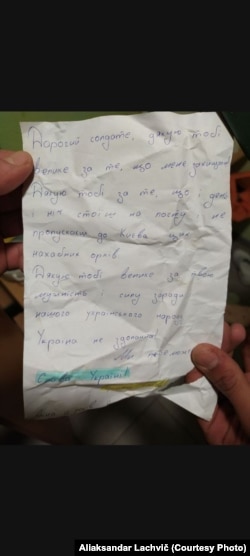 Дорогий солдате, дякую тобі
велике за те, що мене захищаєш
Дякую тобі за те, що і день
і ніч стоїш на посту і не
пропускаєш до Києва цих
нахабних орків
Дякую тобі велике за твою
мужність і силу заради
нашого українського народу
Україна не здолана!
Ми
Слава Україні
Aliaksandar Lachvič (Courtesy Photo)